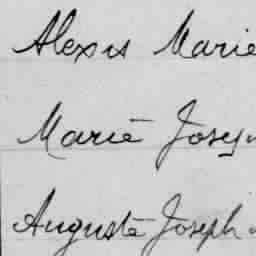 Alexis Marie
Marie Josep
Auguste Joseph